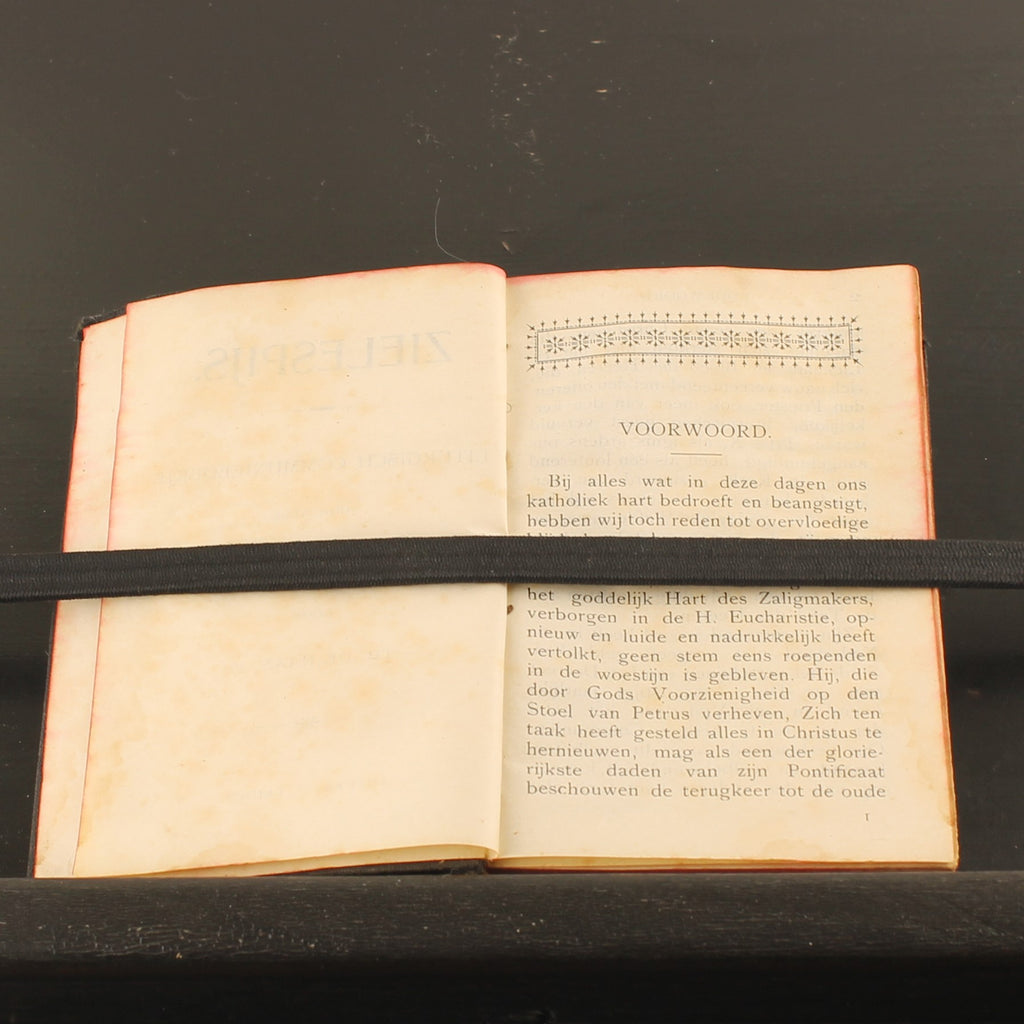 ZIELESPIJS.
VOORWOORD.
Bij alles wat in deze dagen ons
katholiek hart bedroeft en beangstigt,
hebben wij toch reden tot overvloedige
het goddelijk Hart des Zaligmakers,
verborgen in de H. Eucharistie, op-
nieuw en luide en nadrukkelijk heeft
vertolkt, geen stem eens roependen
in de woestijn is gebleven. Hij, die
door Gods Voorzienigheid op den
Stoel van Petrus verheven, Zich ten
taak heeft gesteld alles in Christus te
hernieuwen, mag als een der glorie-
rijkste daden van zijn Pontificaat
beschouwen de terugkeer tot de oude
I